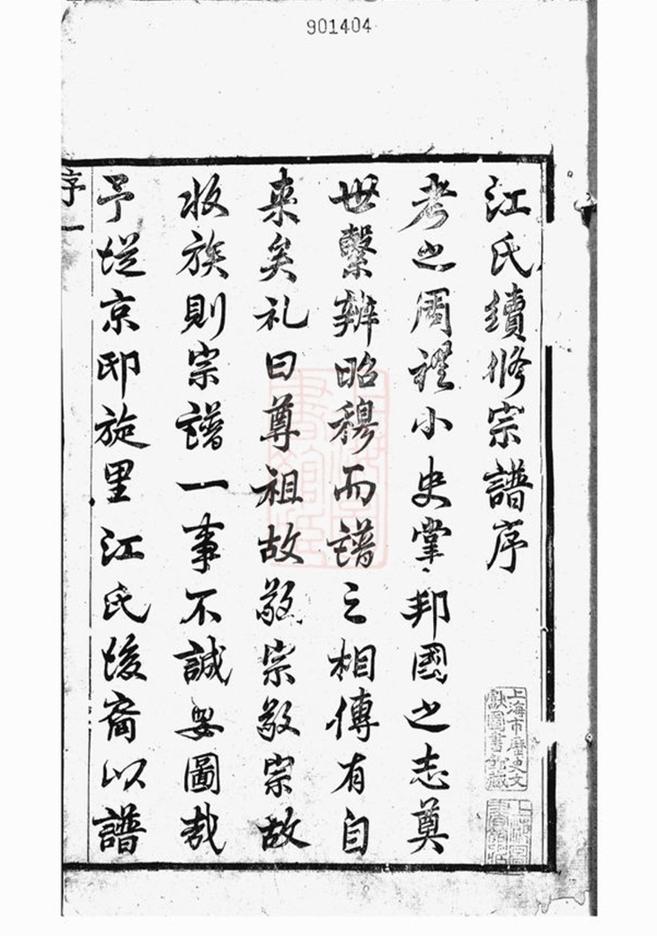 901404
江氏續修宗譜序
考之周禮小史掌邦國之志奠
世繫辨昭穆而譜之相傳有自
来矣礼曰尊祖故敬宗敬宗故
收族則宗譜一事不誠要圖哉
予從京邸旋里江氏後裔以譜
序一
上海市歷史文
獻圖書館藏